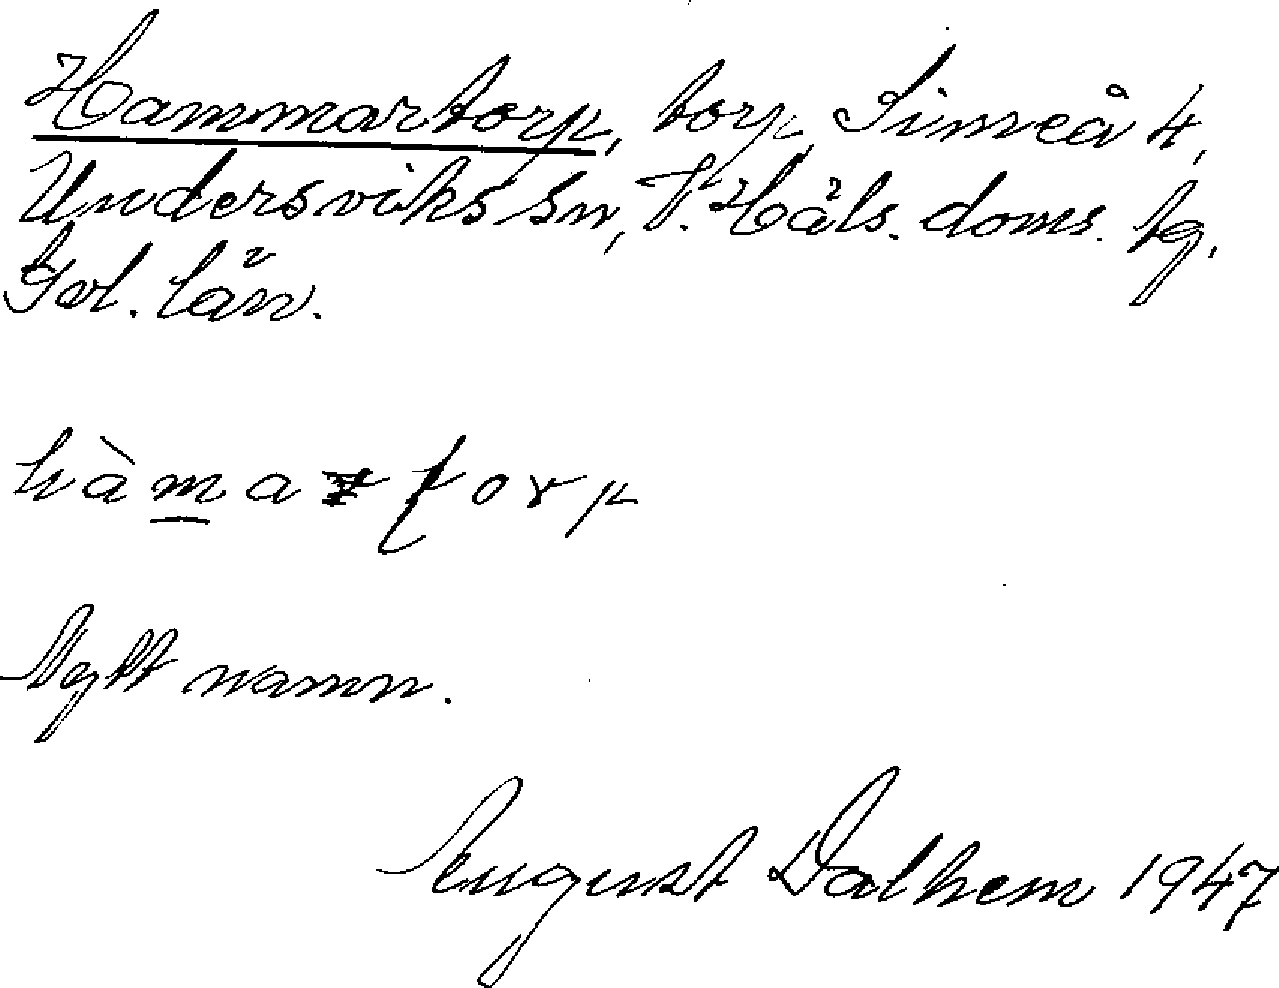 Hammartorp, torp, Simeå 4,
Undersviks sn, V. Häls. doms. tg.
Gvl. län.
hàma torp
Nytt namn.
August Dalhem 1947